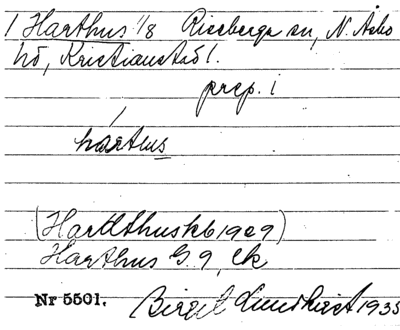 1 Harthus 1/8 Riseberga sn, N. Åsbo
hd, Kristianstads l.
prep. i
hartus
(Hartthus kb 1929)
Harthus G. 9, Ek
Nr 5501. Birgit Lundkvist 1935